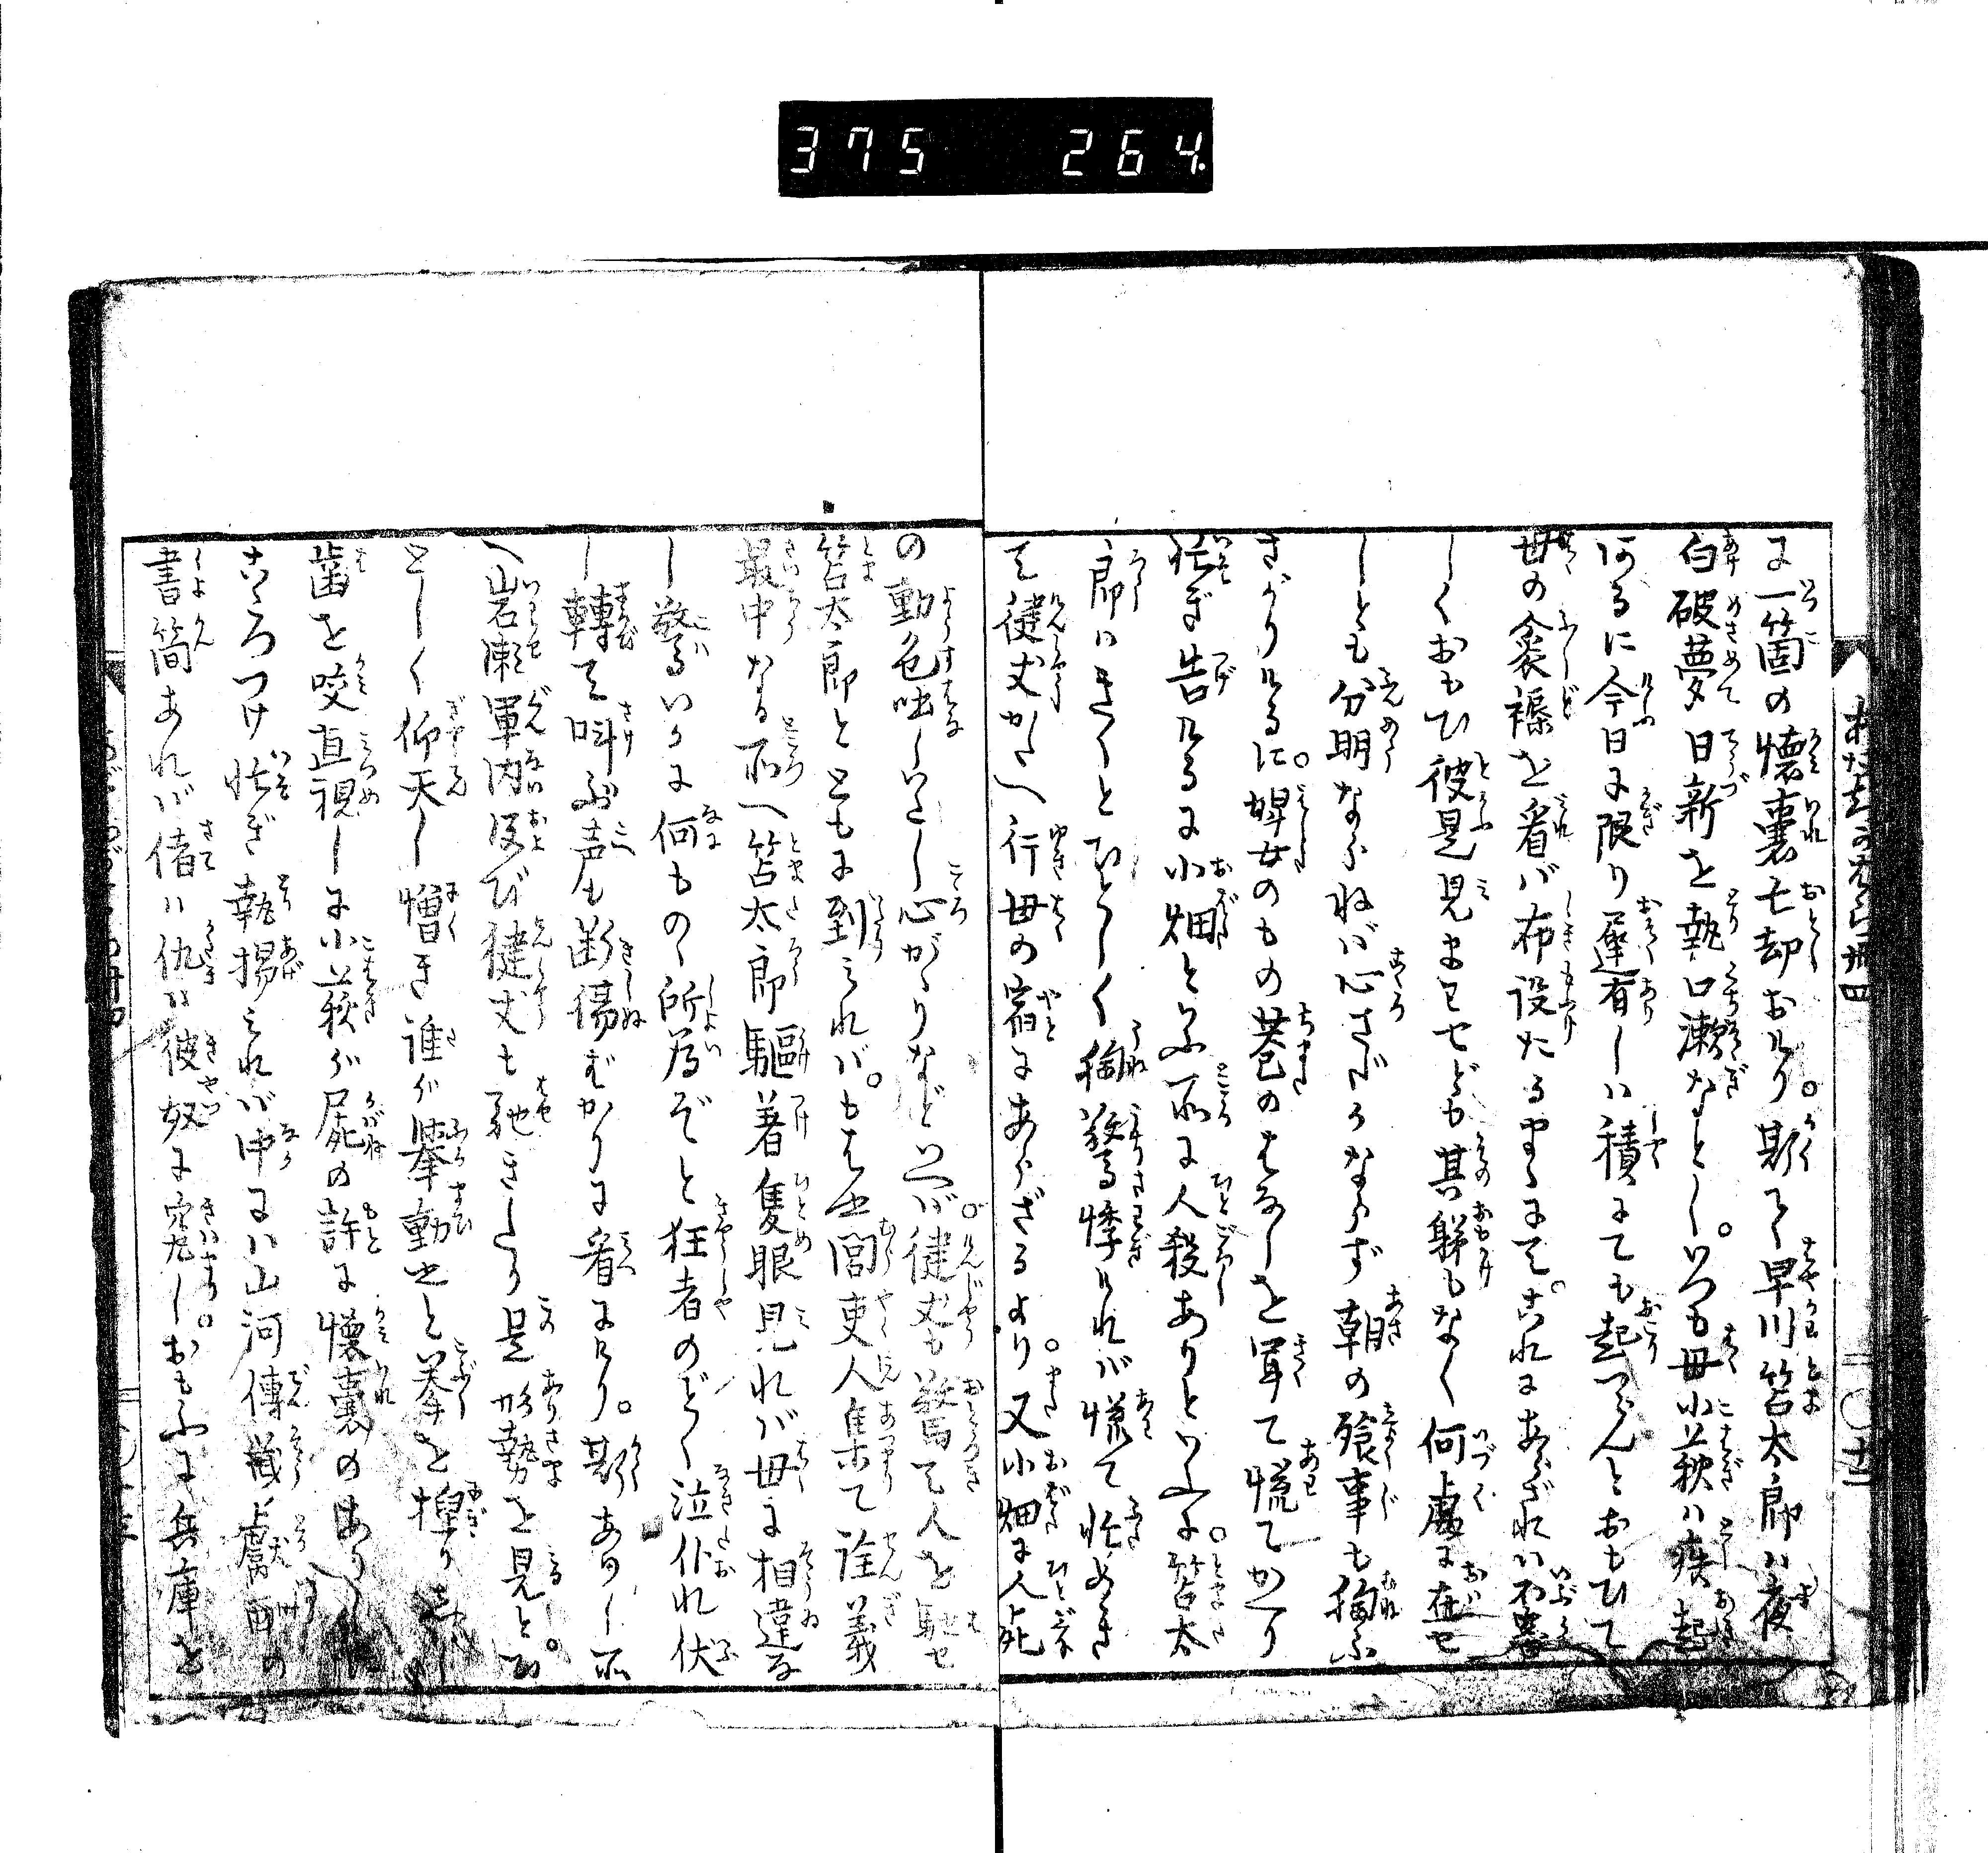 375 264
に一箇の懐裏亡却おけり。斯て早川笘太郎ハ夜
白破夢日新を執口漱なとし。いつも母小萩ハ疾起
なるに今日に限り遅有しハ積にても起つらんとおもひて
母の衾褥を看バ布設たるまゝにて。これにあらざれハ不審
しくおもひ彼是見ませども其躰もなく何處に在せ
しとも分明ならねバ心さだかならず朝の飱事も
さがりけるに。婢女のもの巷のはなしを耳て慌てかへり
忙ぎ告けるに小畑といふ所に人殺ありといふに。笘太
郎ハきくとひとしく驚悸けれバ慌て
て健丈かたへ行母の宿にあらざるより。又小畑に人死
の動色咄しいたし心がゝりなどいへバ。健丈も驚て人を馳せ
笘太郎とともに到られバ。もはや閭吏人集て詮義
最中なる所へ笘太郎駆着隻眼見れバ母に相違な
し驚いかに何ものゝ所為ぞと狂者のごとく泣仆れ伏
し轉て叫ぶ声も断傷ばかりに看にけり。斯ありし所
へ岩瀬軍内及び健丈も馳きたり是形勢を見とひ
としく仰天し憎き誰が挙動やと拳を握り
歯を咬直視しに小萩が屍の許に懐裏のありし
こゝろつけ忙ぎ執揚られバ中にハ山河傳蔵
書簡あれバ偖ハ仇は彼奴に究し。おもふに兵庫を